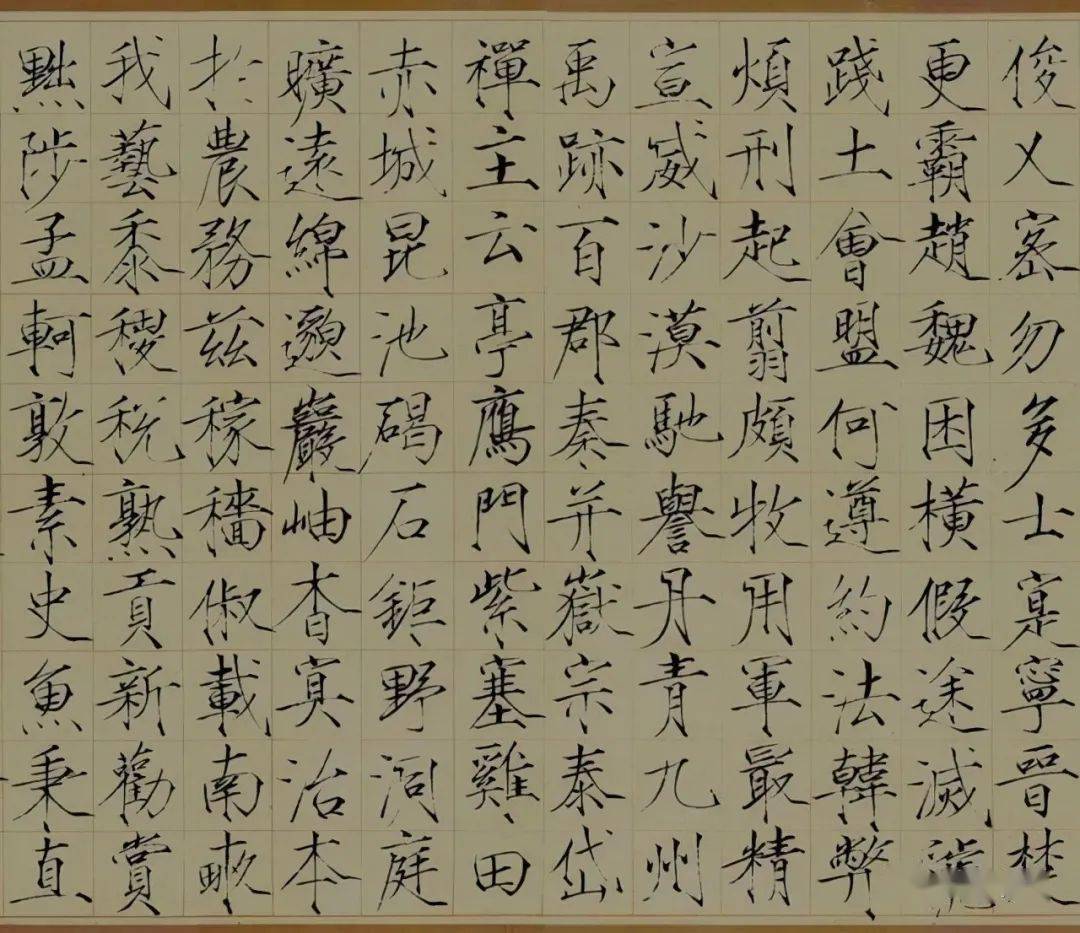 俊乂密勿多士寔寧晉楚
更霸趙魏困橫假途滅虢
踐土會盟何遵約法韓弊
煩刑起翦頗牧用軍最精
宣威沙漠馳譽丹青九州
禹跡百郡秦并嶽宗泰岱
禪主云亭鴈門紫塞雞田
赤城昆池碣石鉅野洞庭
曠遠綿邈巖岫杳冥治本
於農務茲稼穡俶載南畝
我藝黍稷稅熟貢新勸賞
黜陟孟軻敦素史魚秉直